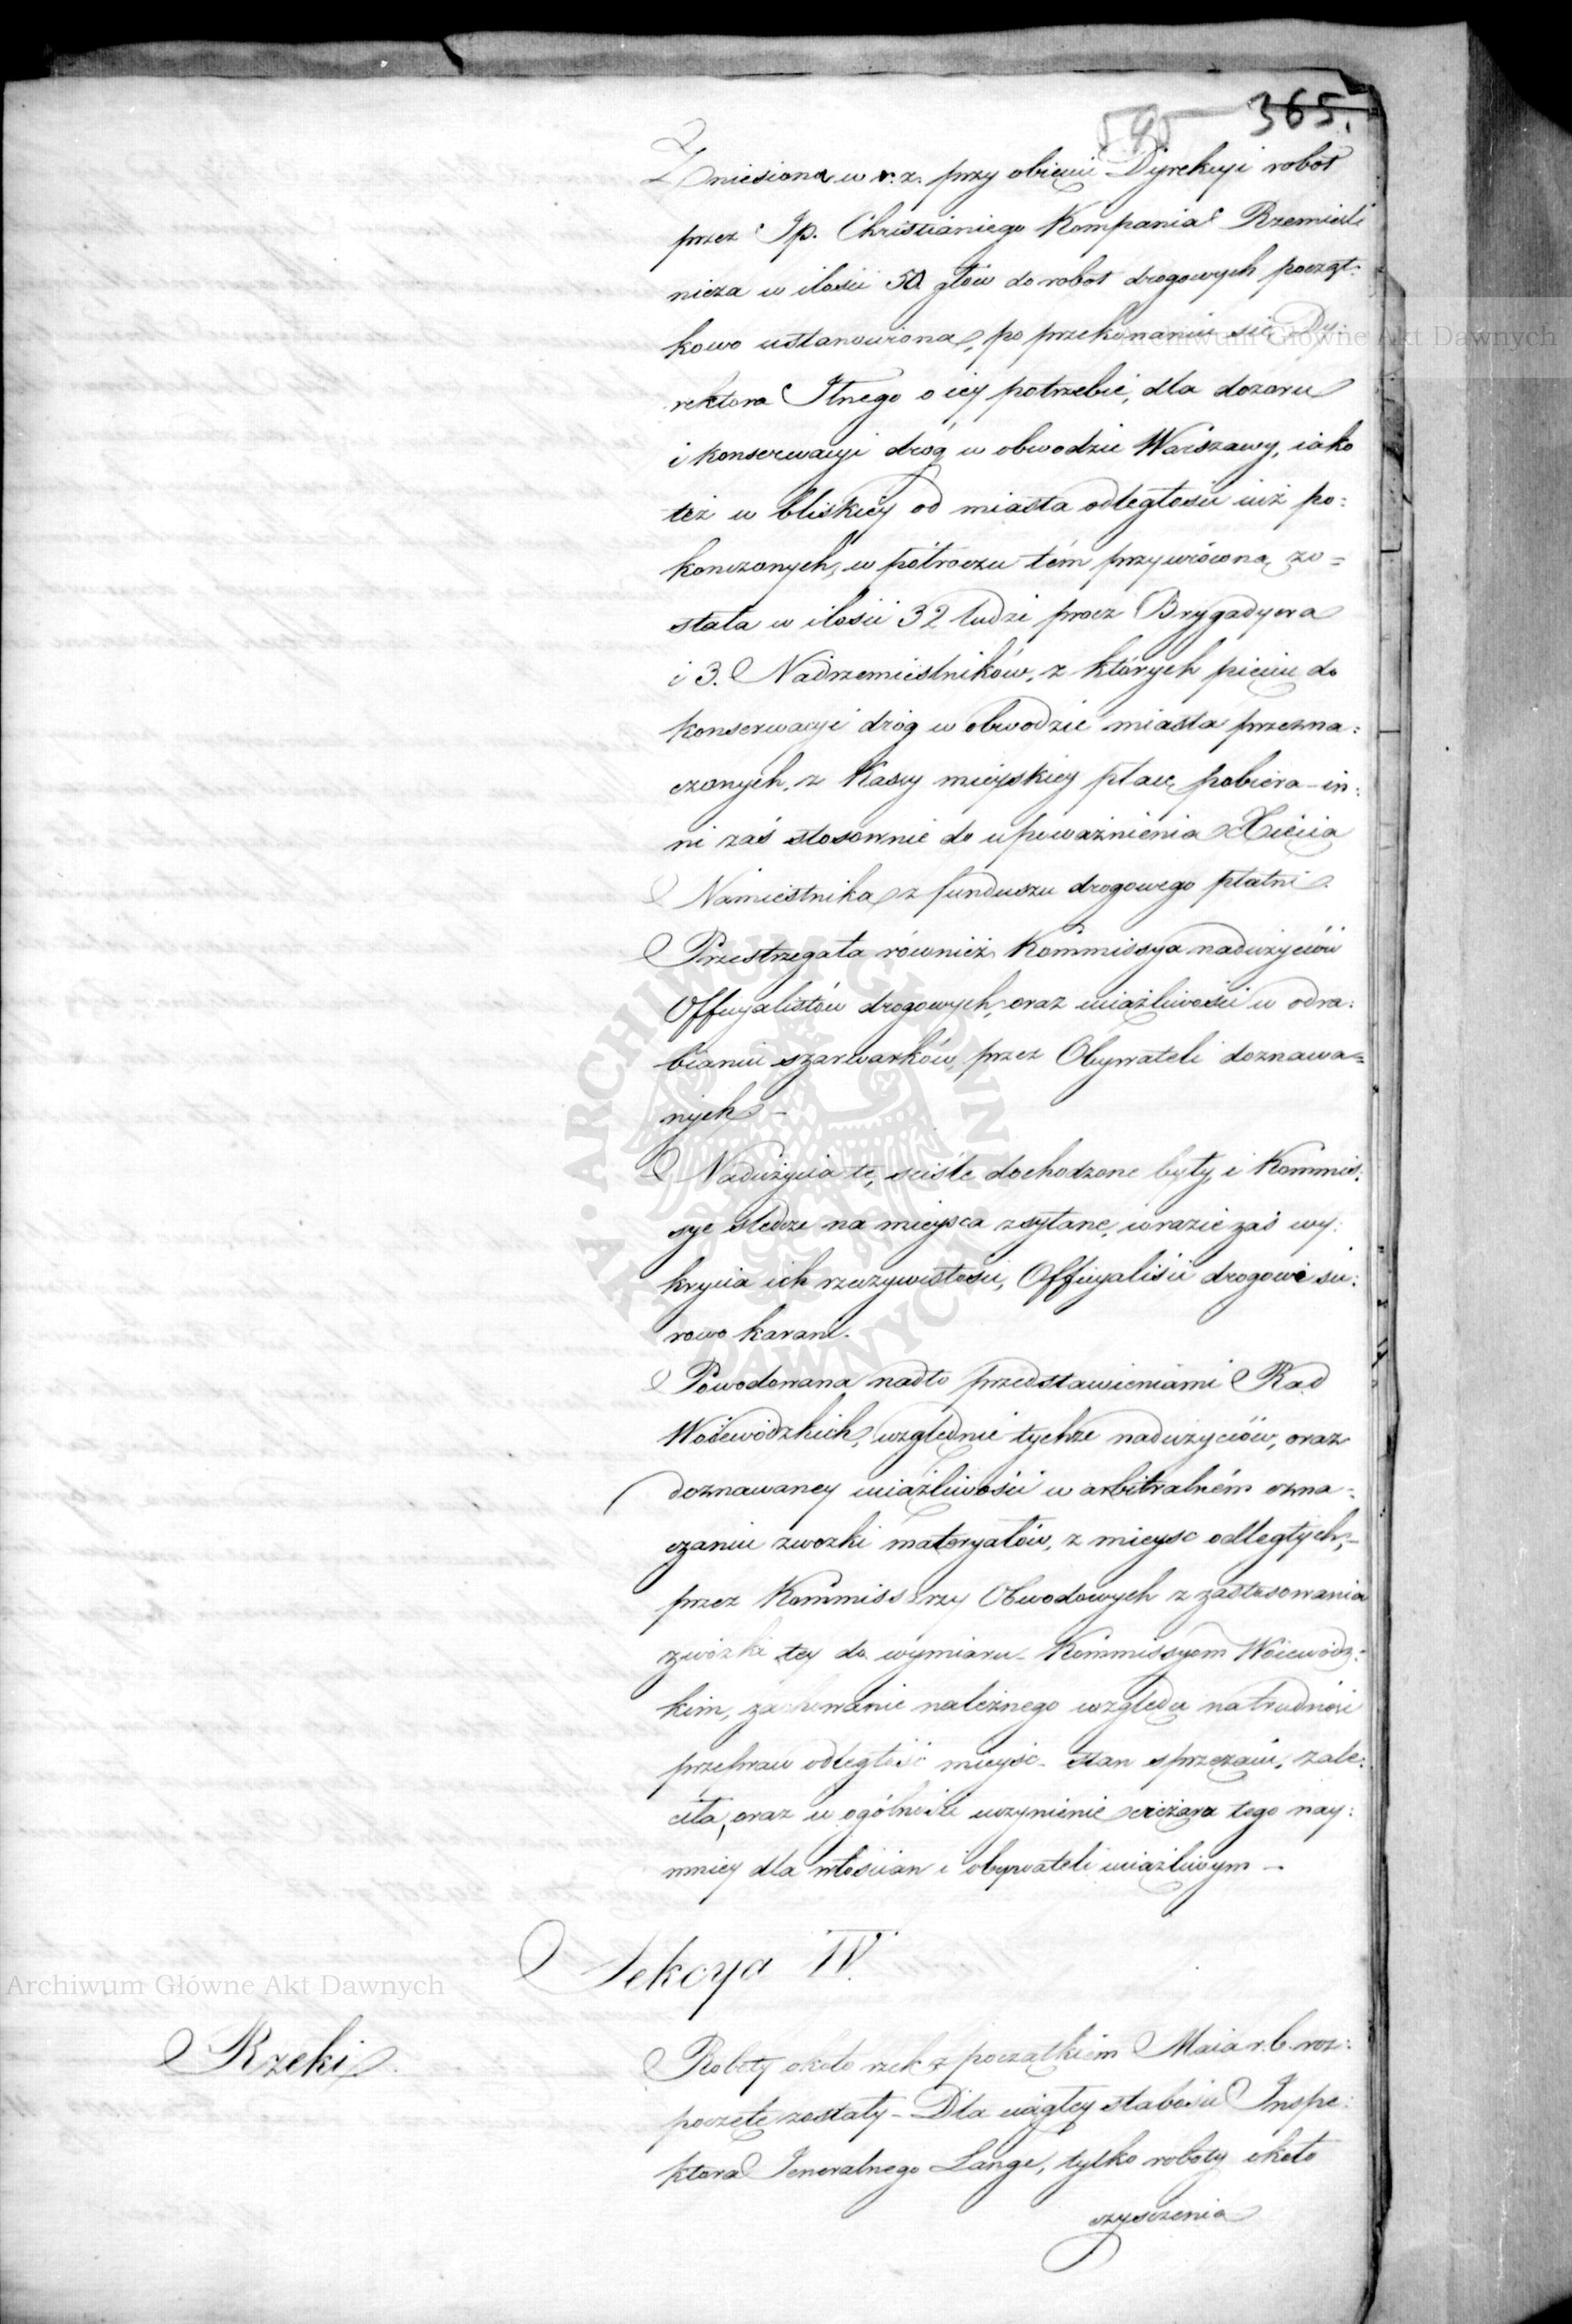 365.
Zniesiona w r. z. przy obięciu Dyrekcyi robot
przez Jp. Christianiego Kompania Rzemieśl
nicza w ilości 50 głów do robot drogowych począt:
kowo ustanowiona, po przekonaniu się Dy:
rektora Jlnego o iey potrzebie, dla dozoru
i konserwacyi dróg w obwodzie Warszawy, iako
też w bliskiey od miasta odległości iuż po:
konczonych, w półroczu tém przywróconą zo=
stała w ilości 32 ludzi prócz Brygadyera
i 3. Nadrzemieślników, z których pięciu do
konserwacyi dróg w obwodzie miasta przezna:
czonych, z Kassy mieyskiey płacę pobiera - in:
ni zaś stosownie do upoważnienia Xięcia
Namiestnika z funduszu drogowego płatni
Przestrzegała również Kommissya nadużyciów
Officyalistów drogowych, oraz uciążliwości w odra:
bianiu szarwarków, przez Obywateli doznawa=
nych -
Nadużycia te, ściśle dochodzone były, i Kommis:
sye śledcze na mieysca zsyłane, w razie zaś wy:
krycia ich rzeczywistości, Officyaliści drogowi su:
rowo karani.
Powodowana nadto przedstawieniami Rad
Woiewódzkich, względnie tychże nadużyciów, oraz
doznawaney uciążliwości w arbitralném ozna=
czaniu zwozki materyałów, z mieysc odległych,-
przez Kommissarzy Obwodowych z zastosowania
zwózki tey do wymiaru - Kommissyom Woiewódz:
kim, zachowanie należnego względu na trudności
przepraw odległość mieysc - stan sprzężaiu, zale:
ciła, oraz w ogólności uczynienie ciężaru tego nay:
mniey dla włościan i obywateli uciążliwym -
Sekcya IV.
Rzeki
Roboty około rzek z początkiem Maia r. b. roz:
poczęte zostały - Dla ciągłey słabości Inspe:
ktora Jeneralnego Lange, tylko roboty około
czyszczenia
Archiwum Główne Akt Dawnych
Archiwum Główne Akt Dawnych
ARCHIWUM GŁÓWNE
AKT DAWNYCH